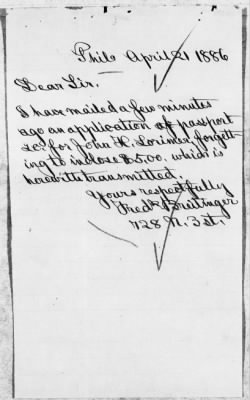 Phil. April 21 1886
Dear Sir.
I have mailed a few minutes
ago an application of passport
&c. for John H. Lorimer, forgett-
ing to inclose $5.00. which is
herewith transmitted.
Yours respectfully
Fredk Breitinger
728 N. 3 st.